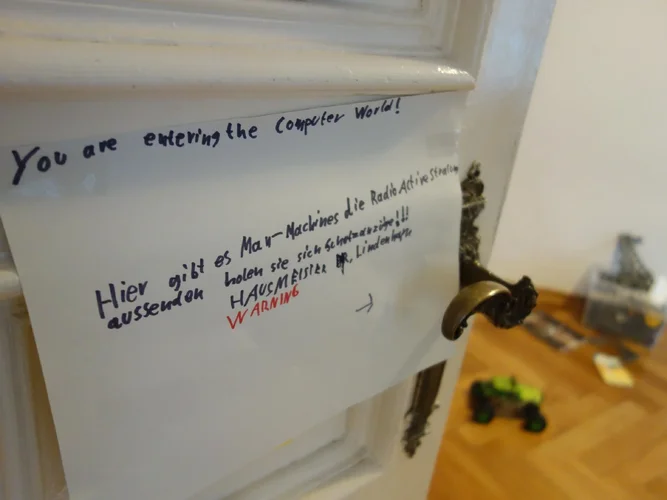 You are entering the Computer World!
Hier gibt es Man-Machines die Radio Active Strahlen
aussenden holen sie sich Schutzanzüge!!!
HAUSMEISTER R, Lindenhafer
WARNING